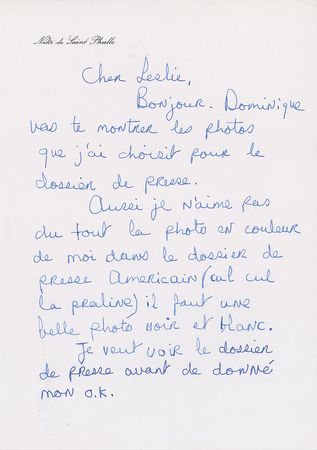 Niki de Saint Phalle
Cher Leslie,
Bonjour. Dominique
vas te montrer les photos
que j'ai choisit pour le
dossier de presse.
Aussi je n'aime pas
du tout la photo en couleur
de moi dans le dossier de
presse Americain (cul cul
la praline) il faut une
belle photo noir et blanc.
Je veut voir le dossier
de presse avant de donné
mon o.k.